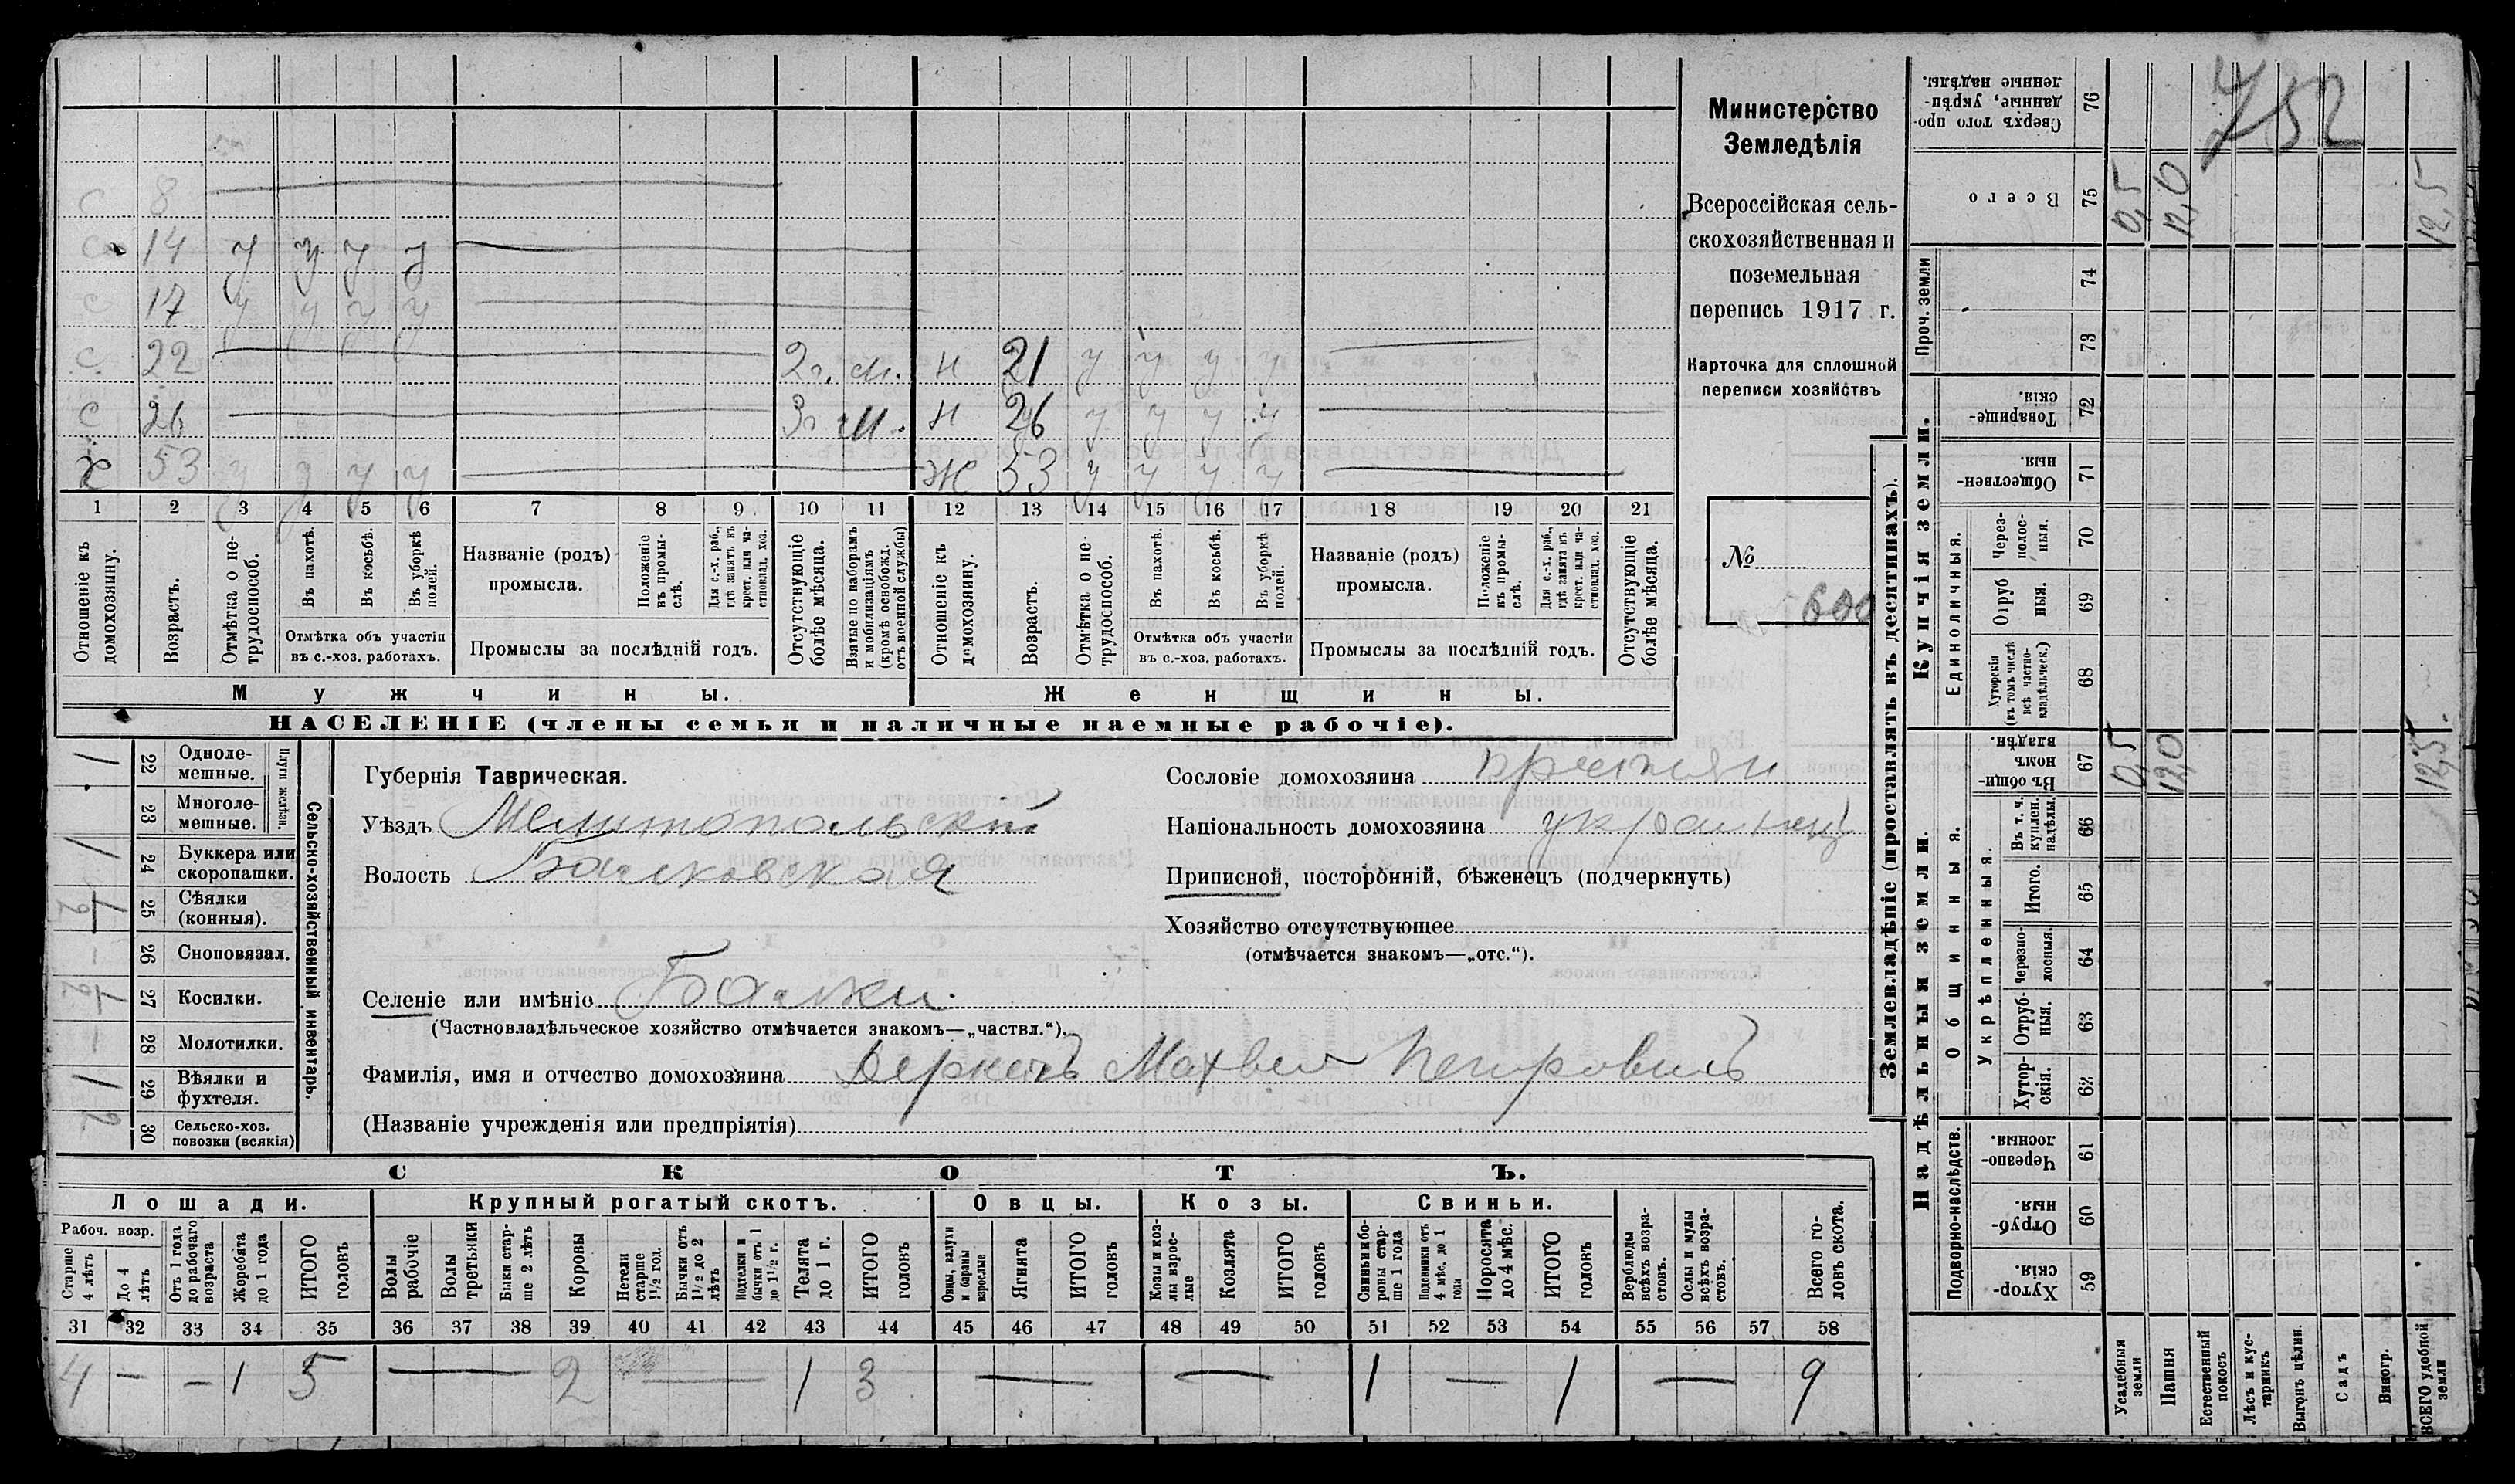 С 8
С 14 у у у у
С 17 у у у у
С 22 2 г. м. Н 21 у у у у
С 26 3 г м. Н 26 у у у у
Х 53 у у у у Ж 53 у у у у
1 2 3 4 5 6 7 8 9 10 11 12 13 14 15 16 17 18 19 20 21
Отношеніе къ домохозяину.
Возрастъ.
Отмѣтка о нетрудоспособ.
Въ пахотѣ.
Въ косьбѣ.
Въ уборкѣ полей.
Отмѣтка объ участіи въ с.-хоз. работахъ.
Названіе (родъ) промысла.
Положеніе въ промыслѣ.
Для с.-х. раб., гдѣ занятъ въ крест. или частновлад. хоз.
Промыслы за послѣдній годъ.
Отсутствующіе болѣе мѣсяца.
Взятые по наборамъ и мобилизаціямъ (кромѣ освобожд. отъ военной службы)
Отношеніе къ домохозяину.
Возрастъ.
Отмѣтка о нетрудоспособ.
Въ пахотѣ.
Въ косьбѣ.
Въ уборкѣ полей.
Отмѣтка объ участіи въ с.-хоз. работахъ.
Названіе (родъ) промысла.
Положеніе въ промыслѣ.
Для с.-х. раб., гдѣ занята въ крест. или частновлад. хоз.
Промыслы за послѣдній годъ.
Отсутствующіе болѣе мѣсяца.
Мужчины. Женщины.
НАСЕЛЕНІЕ (члены семьи и наличные наемные рабочіе).
Министерство
Земледѣлія
Всероссійская сель-
скохозяйственная и
поземельная
перепись 1917 г.
Карточка для сплошной
переписи хозяйствъ
№
600
Сельско-хозяйственный инвентарь.
Плуги желѣзн.
22 Одноле-мешные. 1
23 Многоле-мешные.
24 Буккера или скоропашки. 1
25 Сѣялки (конныя). 1/2
26 Сноповязал. -
27 Косилки. 1/2
28 Молотилки. -
29 Вѣялки и фухтеля. 1
30 Сельско-хоз. повозки (всякія) 2
Губернія Таврическая.
Уѣздъ Мелитопольскій
Волость Балковская
Сословіе домохозяина крестьян
Національность домохозяина украинец
Приписной, посторонній, бѣженецъ (подчеркнуть)
Хозяйство отсутствующее
(отмѣчается знакомъ—„отс.“).
Селеніе или имѣніе Балки.
(Частновладѣльческое хозяйство отмѣчается знакомъ—„частвл.“).
Фамилія, имя и отчество домохозяина Деркачъ Матвей Петровичъ
(Названіе учрежденія или предпріятія)
СКОТЪ.
Лошади. Крупный рогатый скотъ. Овцы. Козы. Свиньи.
Рабоч. возр.
Старше 4 лѣтъ
До 4 лѣтъ
Отъ 1 года до рабочаго возраста
Жеребята до 1 года
ИТОГО головъ
Волы рабочіе
Волы третьяки
Быки старше 2 лѣтъ
Коровы
Нетели старше 1½ год.
Бычки отъ 1½ до 2 лѣтъ
Подтелки и бычки отъ 1 до 1½ г.
Телята до 1 г.
ИТОГО головъ
Овцы, валухи и бараны взрослые
Ягнята
ИТОГО головъ
Козы и козлы взрослые
Козлята
ИТОГО головъ
Свиньи и боровы старше 1 года
Подсвинки отъ 4 мѣс. до 1 года
Поросята до 4 мѣс.
ИТОГО головъ
Верблюды всѣхъ возрастовъ.
Ослы и мулы всѣхъ возрастовъ.
Всего головъ скота.
31 32 33 34 35 36 37 38 39 40 41 42 43 44 45 46 47 48 49 50 51 52 53 54 55 56 57 58
4 — — 1 5 — 2 — 1 3 — — 1 — 1 — 9
Землевладѣніе (проставлять въ десятинахъ).
Надѣльныя земли. Купчія земли.
Проч. земли
Подворно-наслѣдств.
Общинныя.
Укрѣпленныя.
Единоличныя.
76 Сверхъ того проданные, укрѣпленные надѣлы.
75 Всего 0,5 12,0 12,5
74
73
72 Товарищескія.
71 Общественныя.
70 Черезполосныя.
69 Отрубныя.
68 Хуторскія (въ томъ числѣ всѣ частновладѣльческ.)
67 Въ общинномъ владѣн. 0,5 12,0 12,5.
66 Въ т. ч. куплен. надѣлы.
65 Итого.
64 Черезполосныя.
63 Отрубныя.
62 Хуторскія.
61 Черезполосныя.
60 Отрубныя.
59 Хуторскія.
Усадебныя земли
Пашня
Естественный покосъ
Лѣсъ и кустарникъ
Выгонъ цѣлин.
Садъ
Виногр.
ВСЕГО удобной земли
752